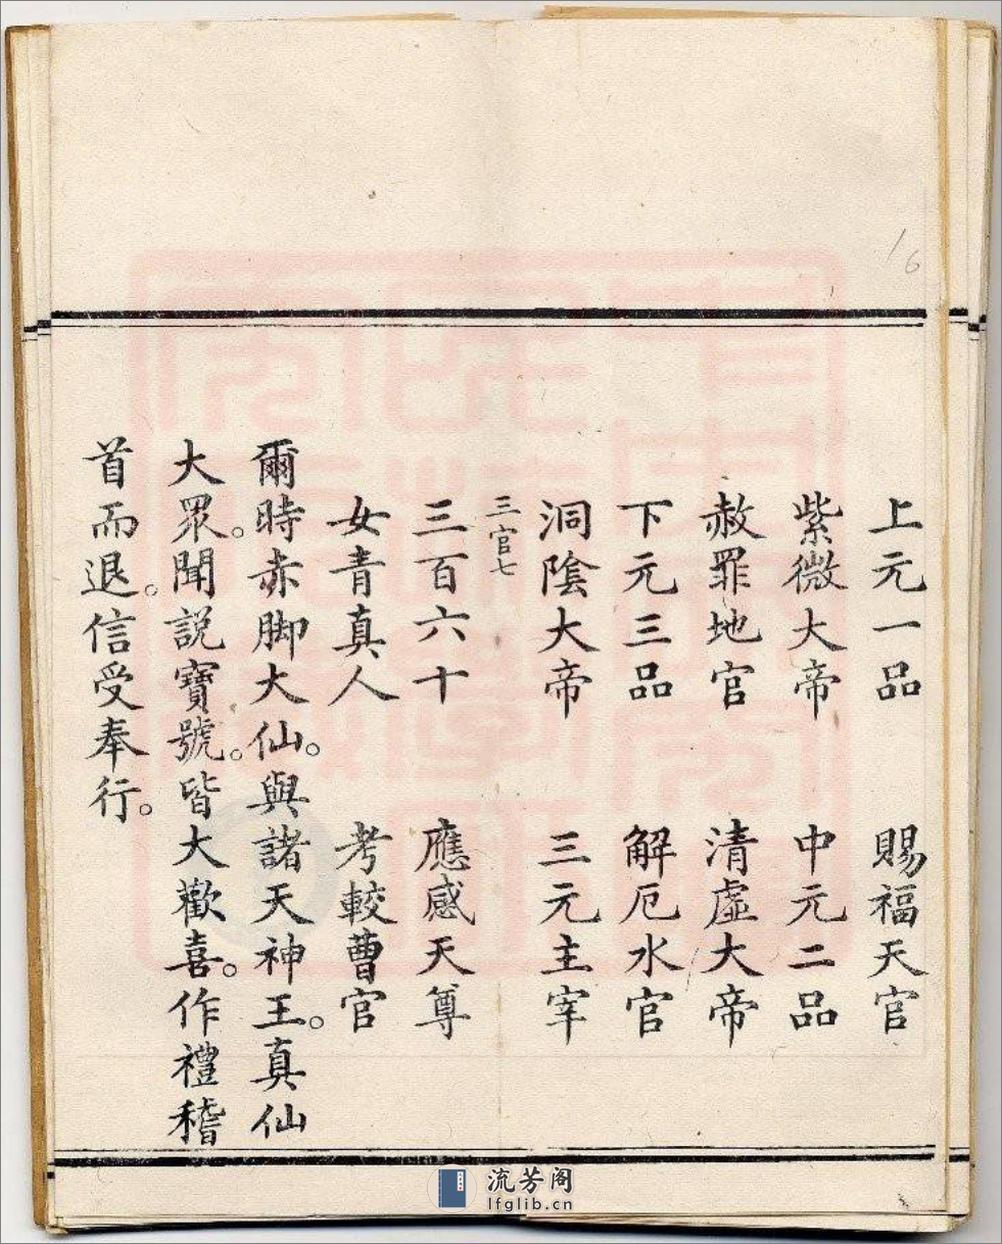 上元一品 賜福天官
紫微大帝 中元二品
赦罪地官 清虛大帝
下元三品 解厄水官
洞陰大帝 三元主宰
三官七
三百六十 應感天尊
女青真人 考較曹官
爾時赤脚大仙。與諸天神王。真仙
大眾。聞説寶號。皆大歡喜。作禮稽
首而退。信受奉行。
16
流芳阁
lfglib.cn